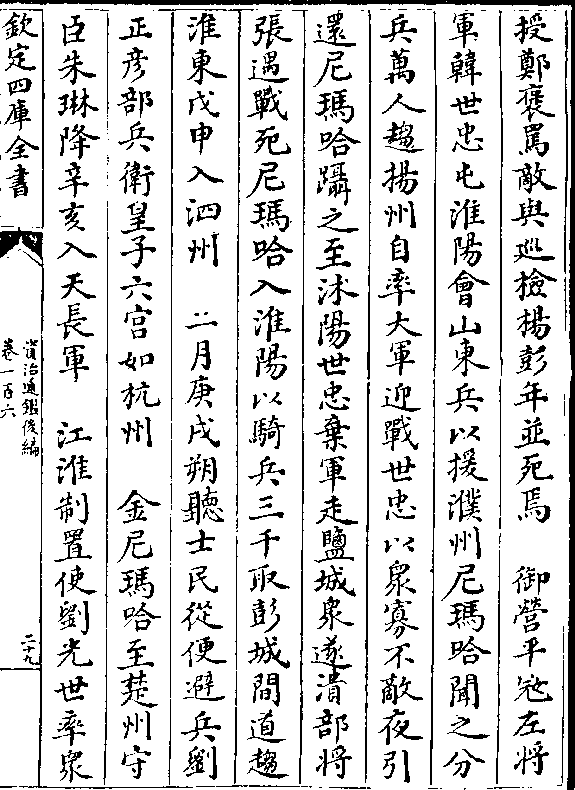 授鄭褒罵敵與巡檢楊彭年並死焉　御營平冦左將
軍韓世忠屯淮陽會山東兵以援濮州尼瑪哈聞之分
兵萬人趨揚州自率大軍迎戰世忠以衆寡不敵夜引
還尼瑪哈躡之至沭陽世忠棄軍走鹽城衆遂潰部將
張遇戰死尼瑪哈入淮陽以騎兵三千取彭城間道趨
淮東戊申入泗州　二月庚戌朔聽士民從便避兵劉
正彦部兵衛皇子六宫如杭州　金尼瑪哈至楚州守
臣朱琳降辛亥入天長軍　江淮制置使劉光世率衆
欽定四庫全書
資治通鑑後編
卷一百六
二十九